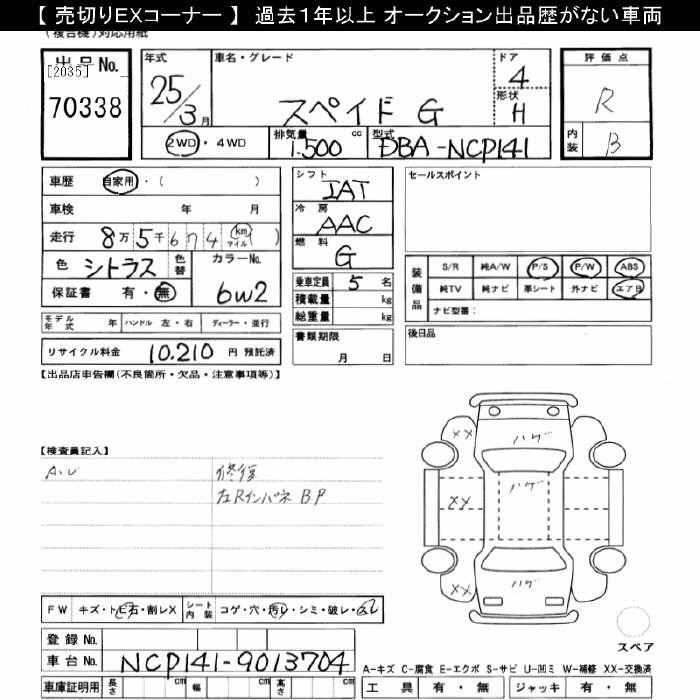 【 売切りEXコーナー 】 過去1年以上 オークション出品歴がない車両
(複合機)対応用紙
出品No.
[2035]
70338
年式
25/3月
車名・グレード
スペイド G
ドア
4
形状
H
評価点
R
内装
B
2WD・4WD
排気量
1.500 cc
型式
DBA-NCP141
車歴 自家用・( )
車検 年 月
走行 8万5千674 km マイル
色 シトラス 色替
カラーNo.
6W2
保証書 有・無
モデル年式 年 ハンドル 左・右 ディーラー・並行
リサイクル料金 10.210 円 預託済
シフト
IAT
冷房
AAC
燃料
G
乗車定員 5 名
積載量 kg
総重量 kg
書類期限
月 日
セールスポイント
装備品
S/R 純A/W P/S P/W ABS
純TV 純ナビ 革シート 外ナビ エアB
ナビ型番:
後日品
【出品店申告欄(不良箇所・欠品・注意事項等)】
【検査員記入】
A.U
修復
左Rインパネ BP
XX
XX
XX
ハゲ
ハゲ
ハゲ
スペア
FW キズ・ト石・割レX シート内装 コゲ・穴・汚レ・シミ・破レ・
登録No.
車台No. NCP141-9013704
車庫証明用 長さ cm 幅 cm 高さ cm
A-キズ C-腐食 E-エクボ S-サビ U-凹ミ W-補修 XX-交換済
工具 有・無 ジャッキ 有・無